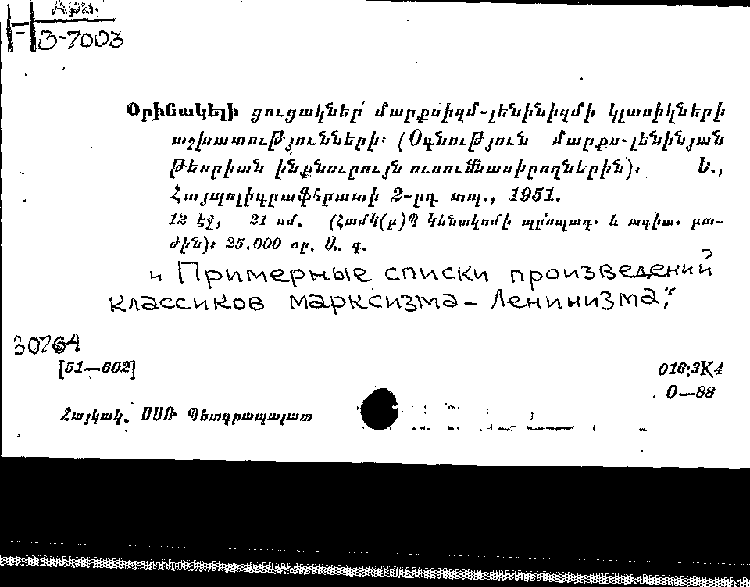 Арм.
Н
3-7003
Օրինակելի ցուցակներ մարքսիզմ-լենինիզմի կլասիկների
աշխատությունների։ (Օգնություն մարքս-լենինյան
թեորիան ինքնուրույն ուսումնասիրողներին)։ Ե.,
Հայպոլիգրաֆհրատի 2-րդ տպ., 1951.
12 էջ, 21 սմ. (Համկ(բ)Պ Կենտկոմի պրոպագ. և ագիտ. բա-
ժին)։ 25.000 օր. Ա. գ.
" Примерные списки произведений
классиков марксизма-Ленинизма"
30764
[51—602]
016:3К4
О—88
Հայկակ. ՍՍՌ Պետգրապալատ